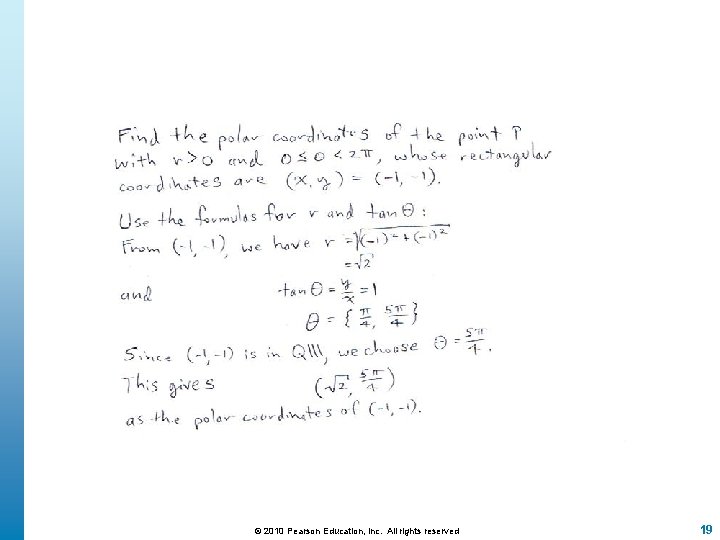 Find the polar coordinates of the point P
with r>0 and 0≤θ<2π, whose rectangular
coordinates are (x,y) = (-1,-1).
Use the formulas for r and tanθ:
From (-1,-1), we have r = √((-1)²+(-1)²)
=√2
and tanθ = y/x = 1
θ = {π/4, 5π/4}
Since (-1,-1) is in QIII, we choose θ = 5π/4.
This gives (√2, 5π/4)
as the polar coordinates of (-1,-1).
© 2010 Pearson Education, Inc. All rights reserved 19